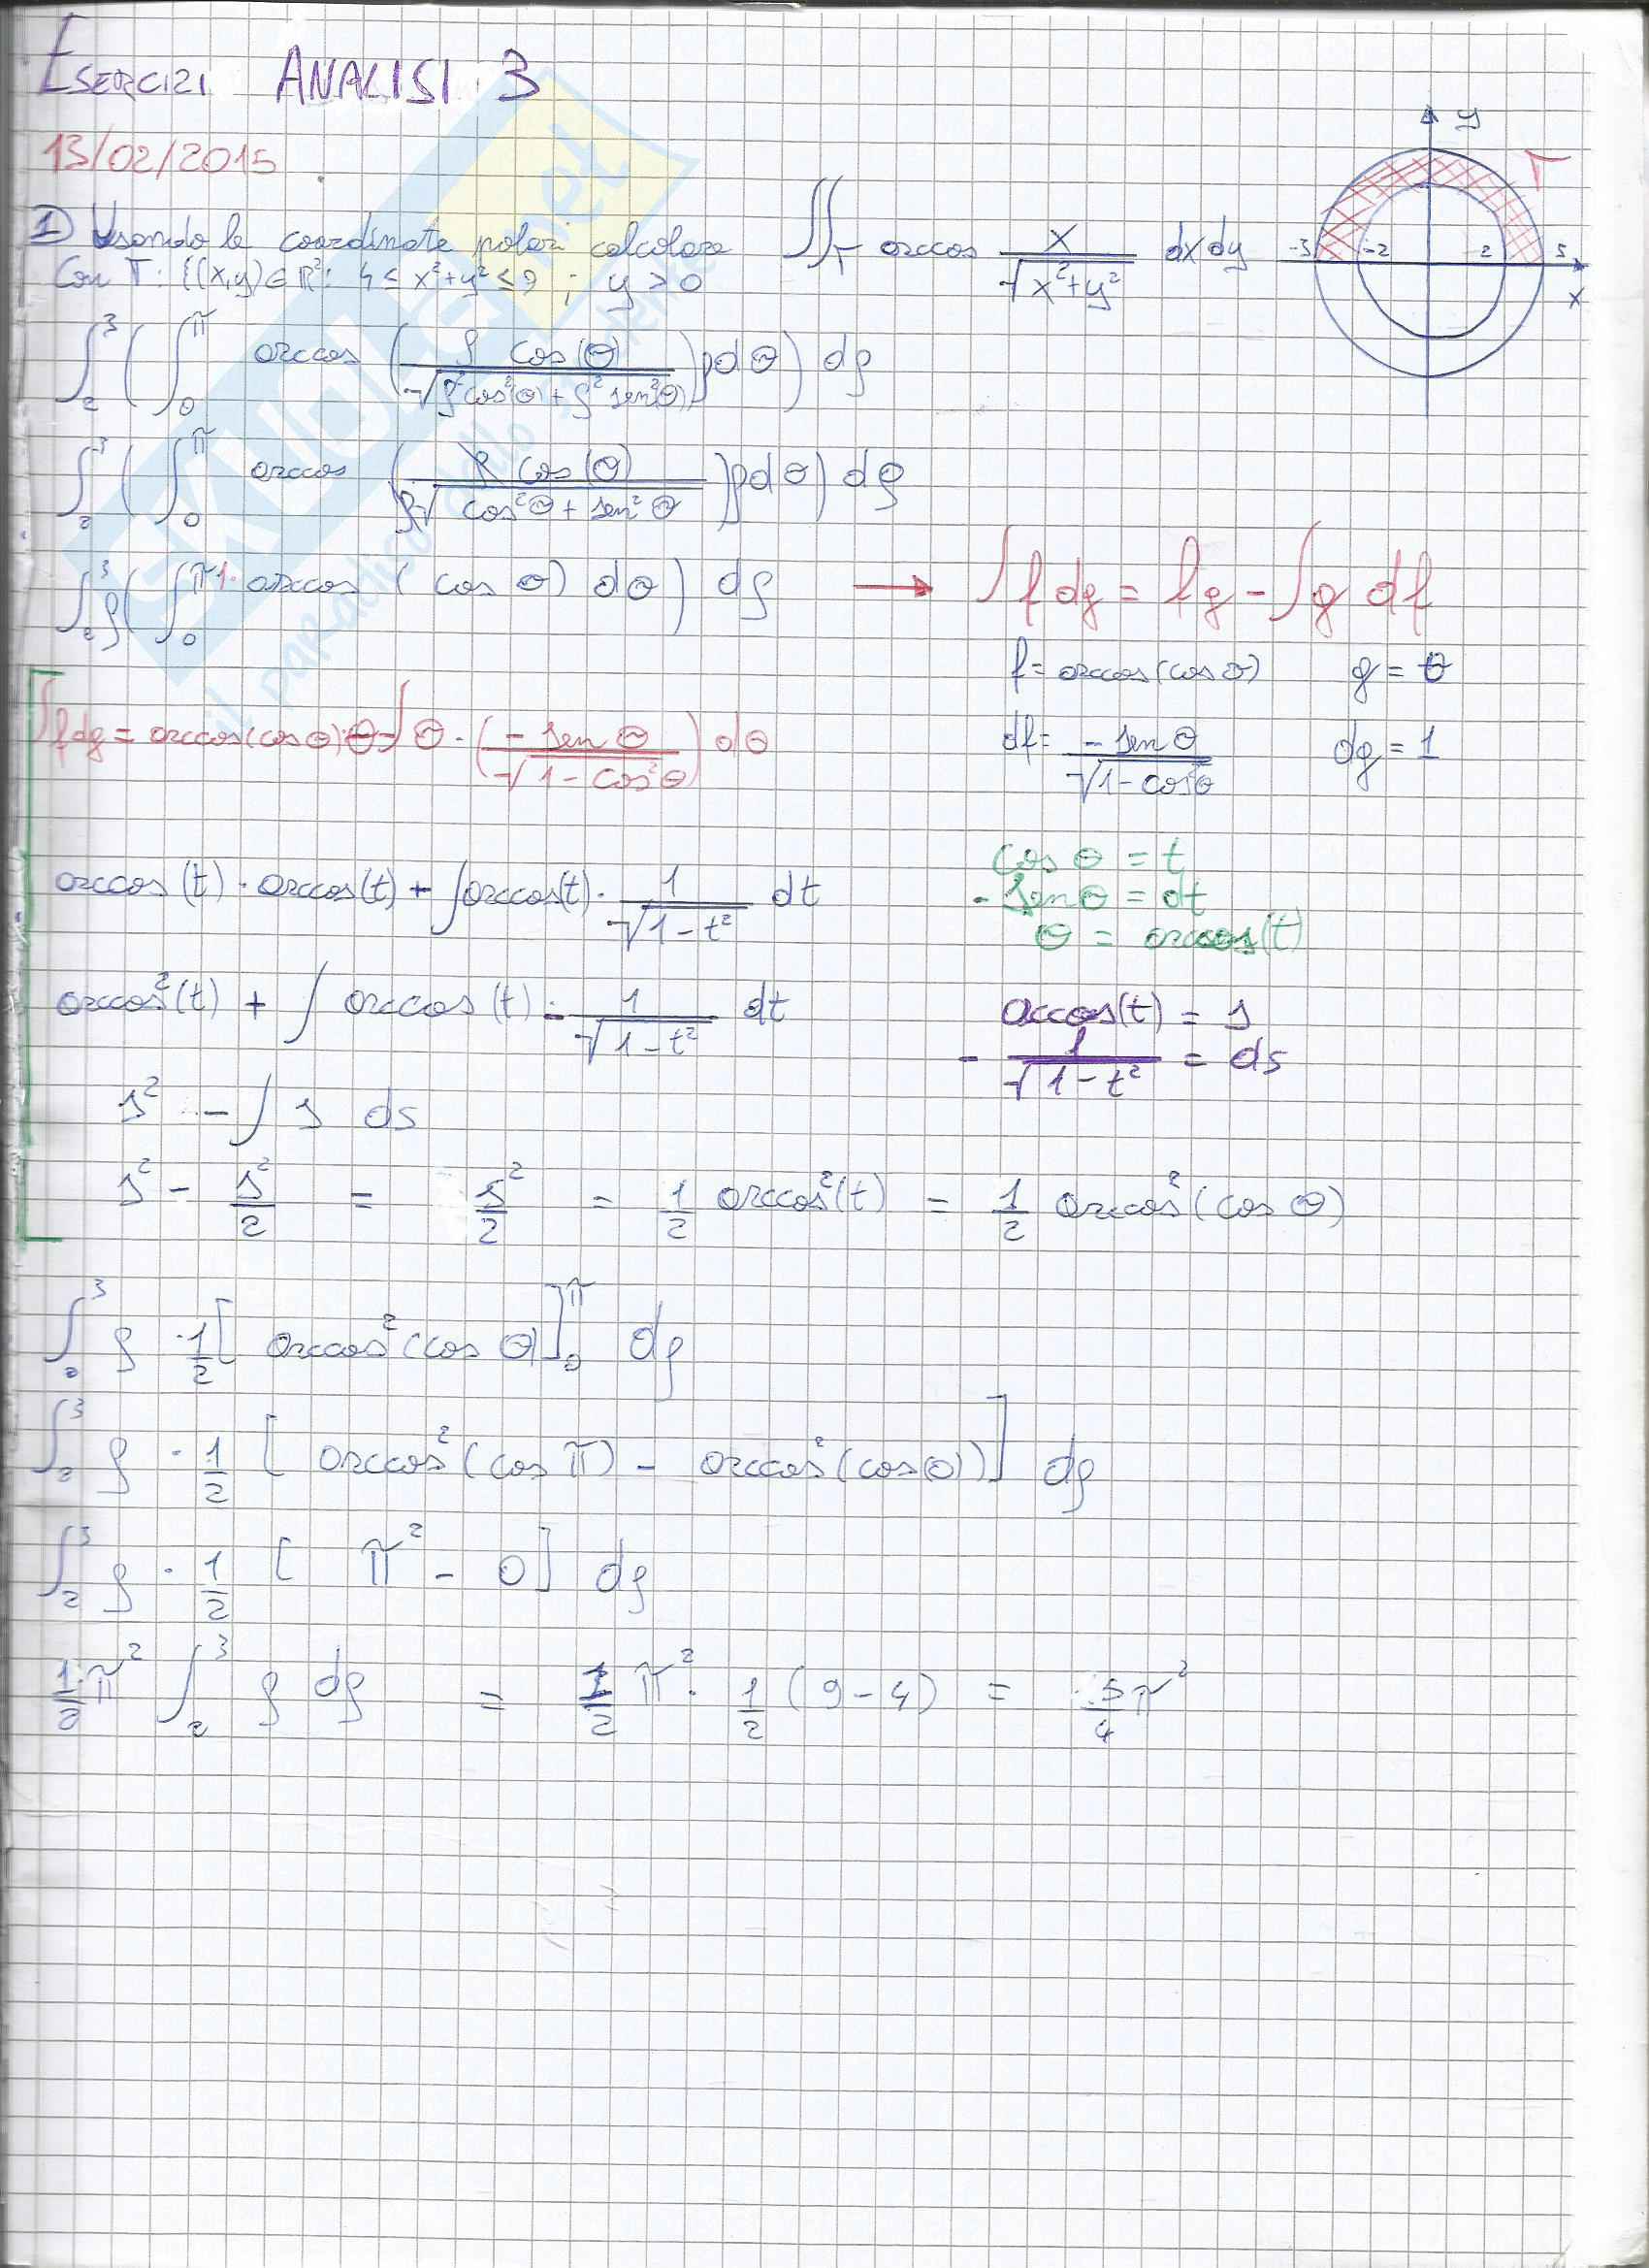 ESERCIZI ANALISI 3
13/02/2015
1) Usando le coordinate polari calcolare ∫∫_T arccos x/√(x²+y²) dx dy
Con T: {(x,y) ∈ ℝ²: 4 ≤ x²+y² ≤ 9 ; y > 0
y
T
-3 -2 2 3
x
∫₂³ ( ∫₀^π arccos ( ρ cos(θ) / √(ρ²cos²(θ) + ρ² sen²θ) ) ρ dθ ) dρ
∫₂³ ( ∫₀^π arccos ( ρ cos(θ) / ρ√(cos²θ + sen²θ) ) ρ dθ ) dρ
∫₂³ ρ ( ∫₀^π 1· arccos ( cos θ) dθ ) dρ → ∫ f dg = fg - ∫ g df
f = arccos(cosθ) g = θ
∫ f dg = arccos(cosθ)·θ - ∫ θ · ( - sen θ / √(1 - cos²θ) ) dθ
df = - sen θ / √(1 - cos²θ) dg = 1
cos θ = t
arccos(t) · arccos(t) + ∫ arccos(t) · 1/√(1-t²) dt
- senθ = dt
θ = arccos(t)
arccos²(t) + ∫ arccos(t) · 1/√(1-t²) dt
arccos(t) = s
- 1/√(1-t²) = ds
s² - ∫ s ds
s² - s²/2 = s²/2 = 1/2 arccos²(t) = 1/2 arccos²(cos θ)
∫₂³ ρ · 1/2 [ arccos²(cos θ) ]₀^π dρ
∫₂³ ρ · 1/2 [ arccos²(cos π) - arccos²(cos 0) ] dρ
∫₂³ ρ · 1/2 [ π² - 0 ] dρ
1/2 π² ∫₂³ ρ dρ = 1/2 π² · 1/2 (9 - 4) = 5/4 π²